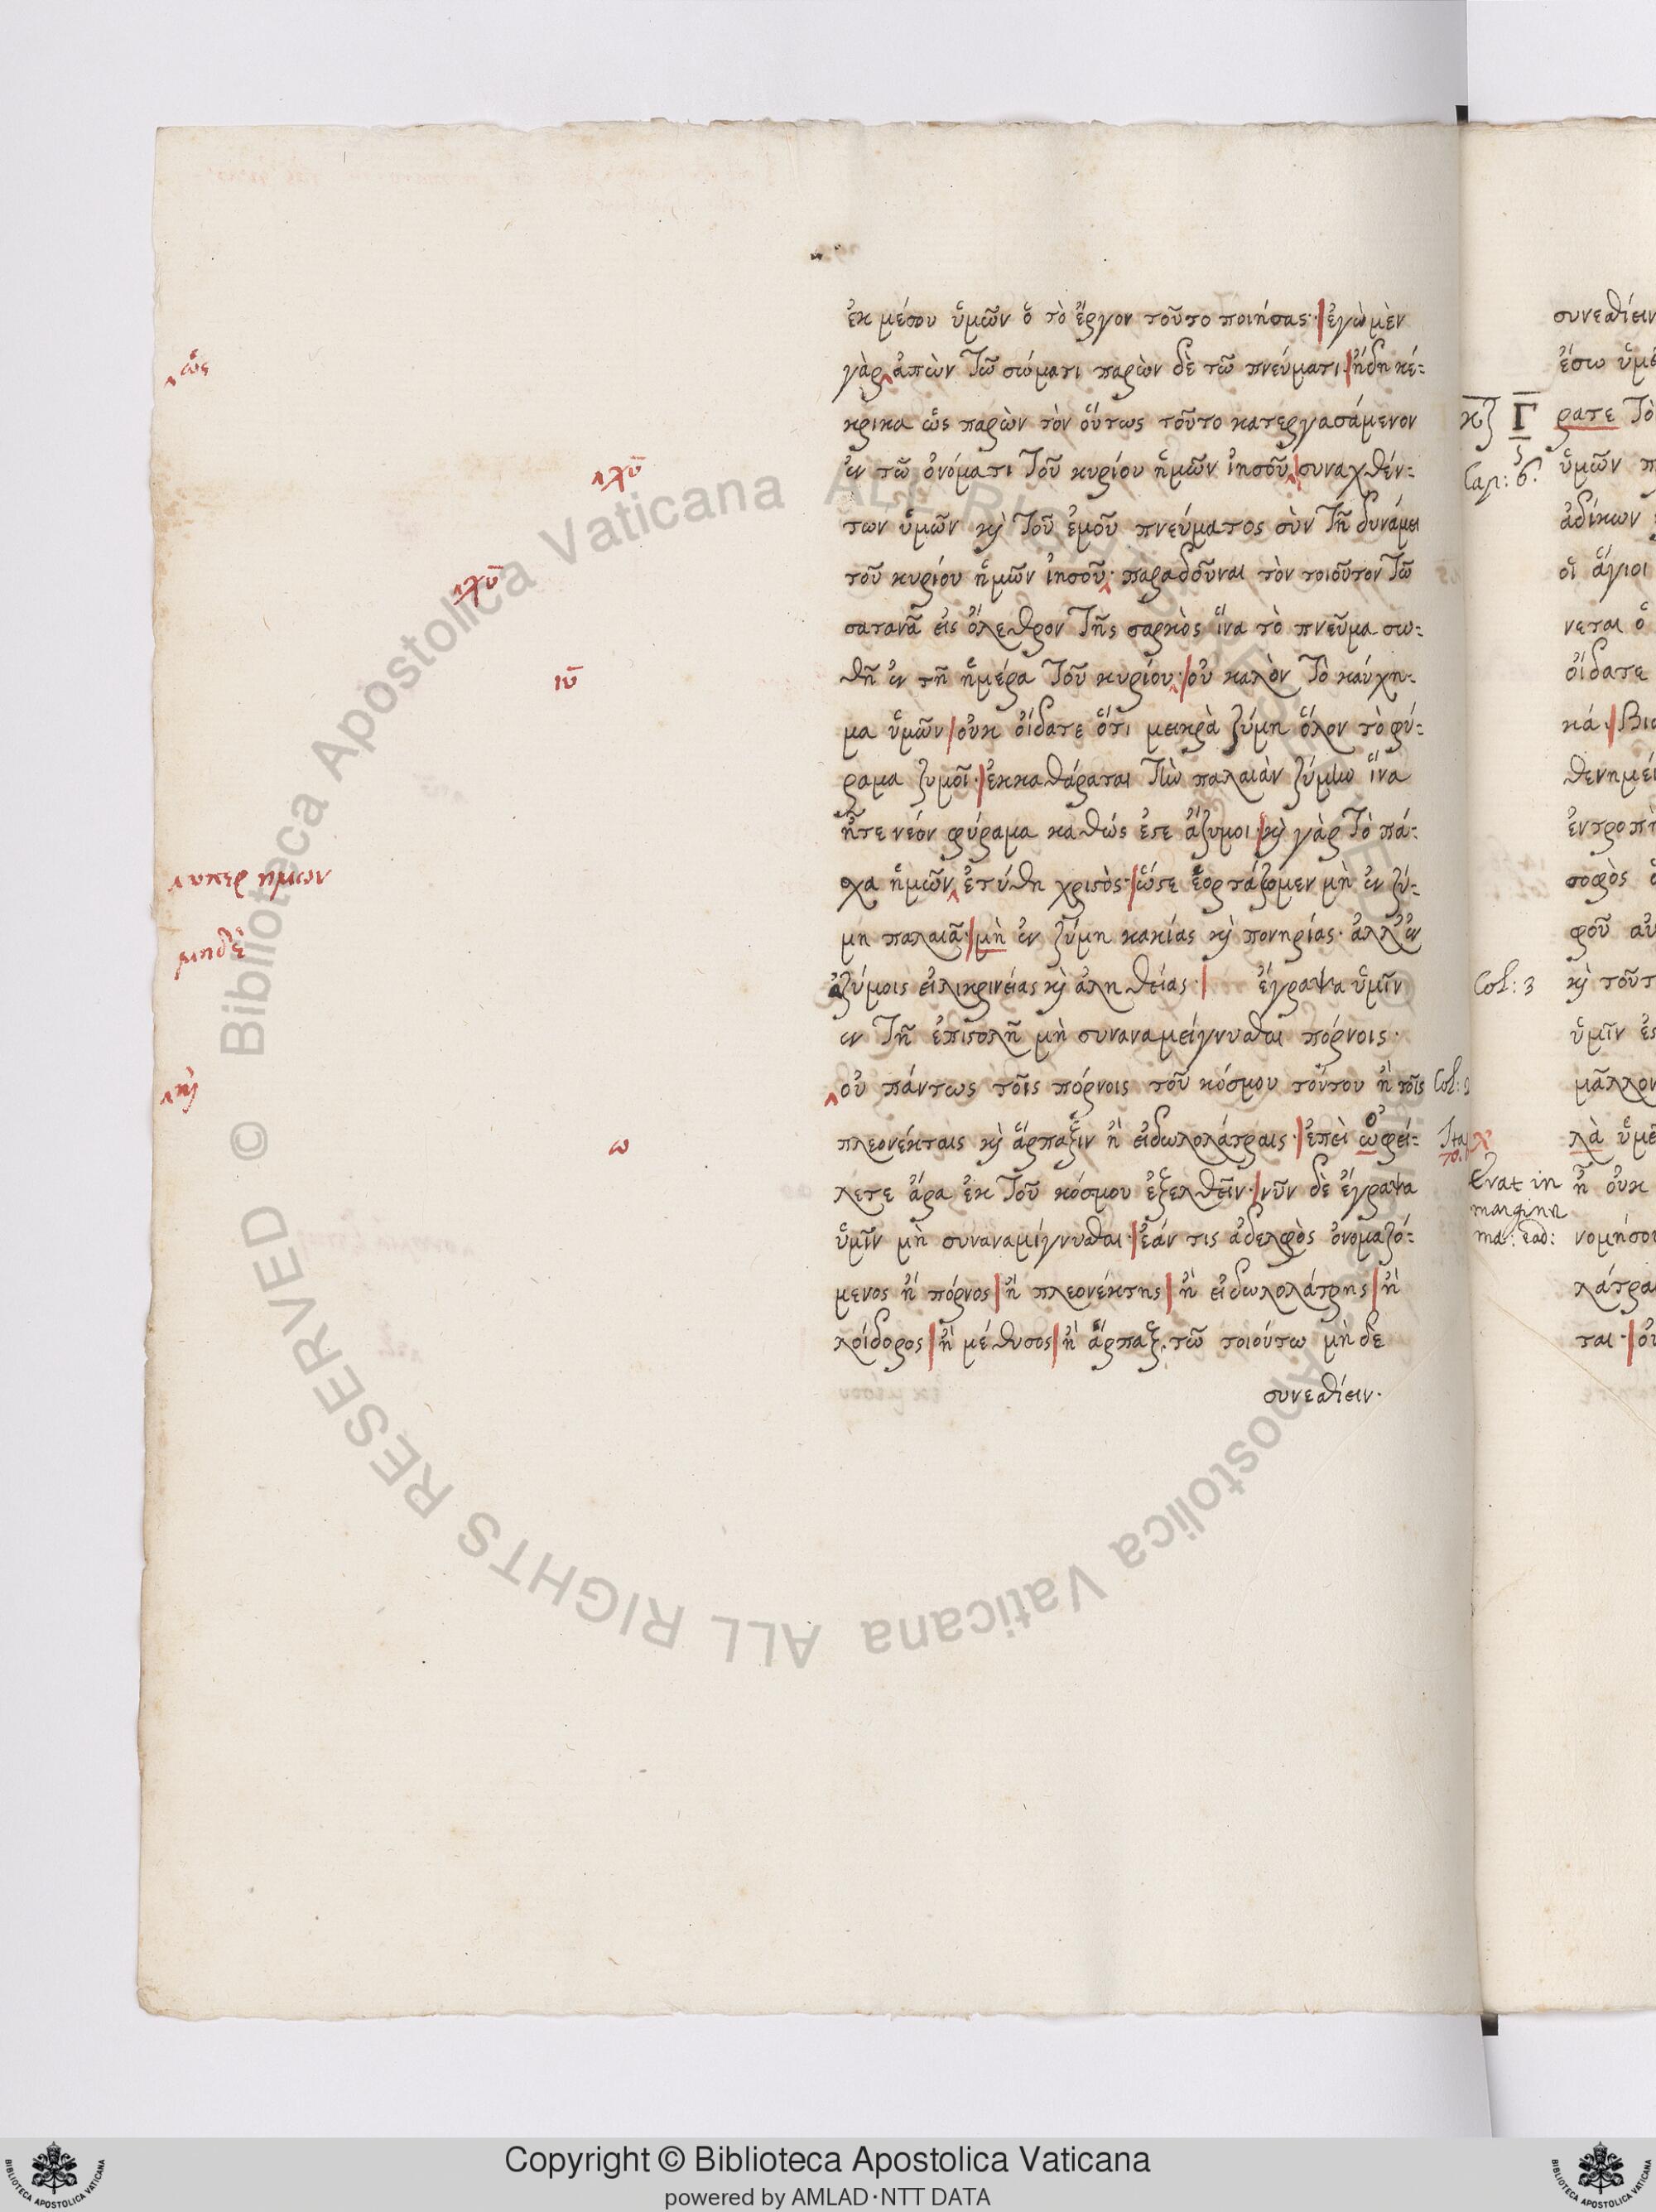 ἐκ μέσου ὑμῶν ὁ τὸ ἔργον τοῦτο ποιήσας· ἐγὼ μὲν
γὰρ ἀπὼν τῶ σώματι παρὼν δὲ τῶ πνεύματι· ἤδη κέ-
κρικα ὡς παρὼν τὸν οὕτως τοῦτο κατεργασάμενον
ἐν τῶ ὀνόματι τοῦ κυρίου ἡμῶν ἰησοῦ συναχθέν-
των ὑμῶν κỳ τοῦ ἐμοῦ πνεύματος σὺν τῆ δυνάμει
τοῦ κυρίου ἡμῶν ἰησοῦ· παραδοῦναι τὸν τοιοῦτον τῶ
σατανᾶ εἰς ὄλεθρον τῆς σαρκὸς ἵνα τὸ πνεῦμα σω-
θῆ ἐν τῆ ἡμέρα τοῦ κυρίου· οὐ καλὸν τὸ καύχη-
μα ὑμῶν οὐκ οἴδατε ὅτι μεικρὰ ζύμη ὅλον τὸ φύ-
ραμα ζυμοῖ· ἐκκαθάραται τὴν παλαιὰν ζύμην ἵνα
ἦτε νέον φύραμα καθώς ἐϛε ἄζυμοι· κỳ γὰρ τὸ πά-
σχα ἡμῶν ἐτύθη χριϛὸς· ὥϛε ἑορτάζομεν μὴ ἐν ζύ-
μη παλαιᾶ· μὴ ἐν ζύμη κακίας κỳ πονηρίας· ἀλλ' ἐν
ἀζύμοις εἰλικρινείας κỳ ἀληθείας· ἔγραψα ὑμῖν
ἐν τῆ ἐπιϛολῆ μὴ συναναμείγνυσθαι πόρνοις·
οὐ πάντως τοῖς πόρνοις τοῦ κόσμου τούτου ἢ τοῖς
πλεονέκταις κỳ ἅρπαξιν ἢ εἰδωλολάτραις· ἐπεὶ ὠφεί-
λετε ἄρα ἐκ τοῦ κόσμου ἐξελθεῖν· νῦν δὲ ἔγραψα
ὑμῖν μὴ συναναμίγνυσθαι· ἐάν τις ἀδελφὸς ὀνομαζό-
μενος ἢ πόρνος ἢ πλεονέκτης ἢ εἰδωλολάτρης ἢ
λοίδορος ἢ μέθυσος ἢ ἅρπαξ· τῶ τοιούτω μὴ δε
συνεσθίειν·
ὡς
χῦ
χῦ
ιῦ
υπερ ημων
μηδὲ
κỳ
ω
συνεσθίειν
ἔσω ὑμε
Γ ρατε τὸ
Cap: 6.
ὑμῶν π
ἀδίκων
οἱ ἅγιοι
νεται ὁ
οἴδατε
κά· βιω
θενημέ
ἐντροπὴ
σοφὸς
φοῦ αυ
Col: 3
κỳ τοῦτ
ὑμῖν ἐϛ
μᾶλλον
λὰ ὑμε
Erat in
margine
ἢ οὐκ
νομήσου
λάτραι
ται· οὐ
Copyright © Biblioteca Apostolica Vaticana
powered by AMLAD·NTT DATA
© Biblioteca Apostolica Vaticana ALL RIGHTS RESERVED